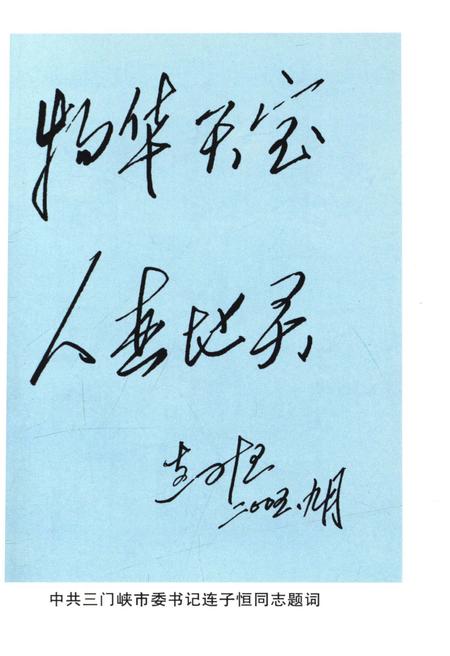 物华天宝
人杰地灵
连子恒
二00五.九月
中共三门峡市委书记连子恒同志题词